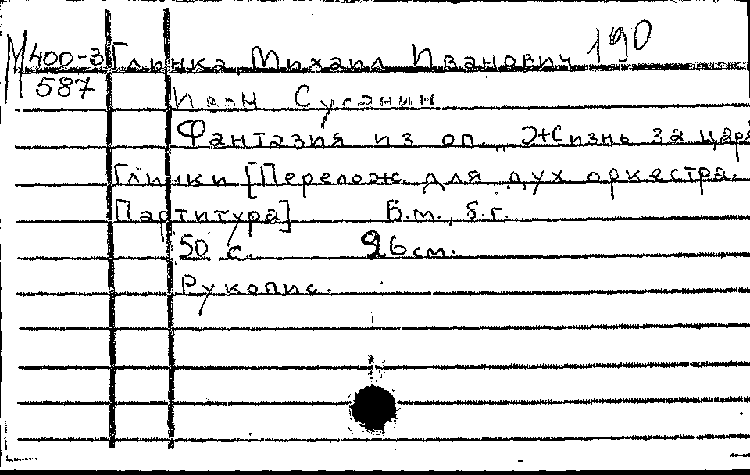 М400-3 Глинка, Михаил Иванович 190
587
Иван Сусанин
Фантазия из оп. „Жизнь за царя
Глинки [Перелож. для дух оркестра.
Партитура] Б.м., б.г.
50 с. 26 см.
Рукопис.